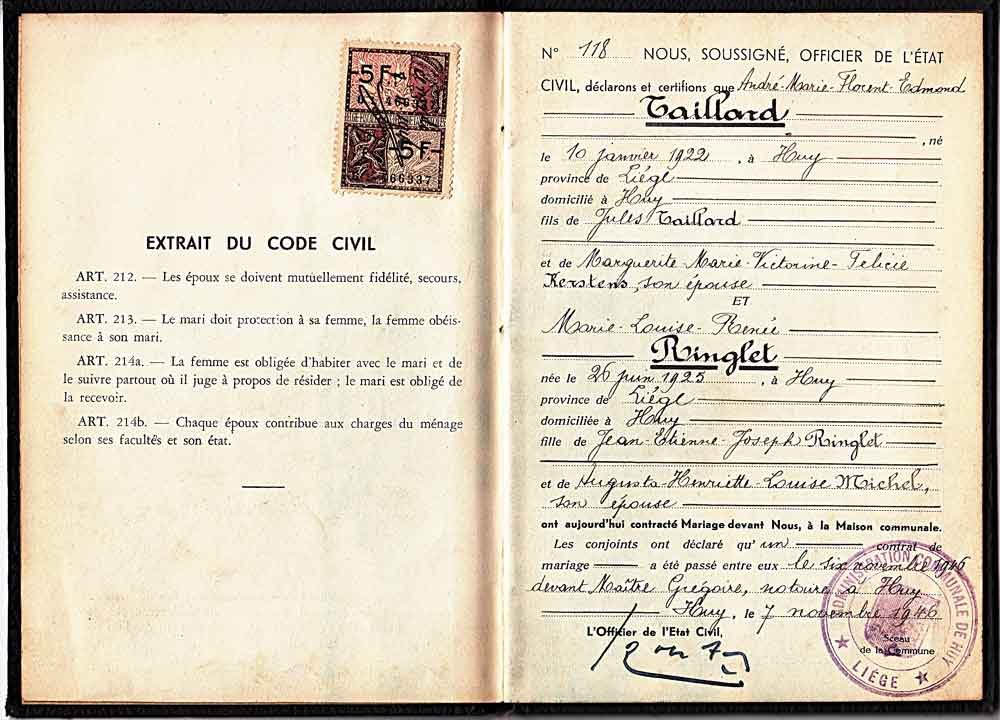 -5F-
-5F-
66337
EXTRAIT DU CODE CIVIL
ART. 212. — Les époux se doivent mutuellement fidélité, secours,
assistance.
ART. 213. — Le mari doit protection à sa femme, la femme obéis-
sance à son mari.
ART. 214a. — La femme est obligée d'habiter avec le mari et de
le suivre partout où il juge à propos de résider ; le mari est obligé de
la recevoir.
ART. 214b. — Chaque époux contribue aux charges du ménage
selon ses facultés et son état.
N° 118 NOUS, SOUSSIGNÉ, OFFICIER DE L'ÉTAT
CIVIL, déclarons et certifions que André-Marie-Florent-Edmond
Taillard
, né
le 10 janvier 1922, à Huy
province de Liége
domicilié à Huy
fils de Jules Taillard
et de Marguerite-Marie-Victorine-Félicie
Kerstens, son épouse
ET
Marie-Louise-Renée
Ringlet
née le 26 juin 1925, à Huy
province de Liége
domiciliée à Huy
fille de Jean-Etienne-Joseph Ringlet
et de Augusta-Henriette-Louise Michel,
son épouse
ont aujourd'hui contracté Mariage devant Nous, à la Maison communale.
Les conjoints ont déclaré qu'un contrat de
mariage a été passé entre eux le six novembre 1946
devant Maître Grégoire, notaire à Huy
Huy, le 7 novembre 1946
L'Officier de l'Etat Civil,
Sceau
de la Commune
ADMINISTRATION COMMUNALE DE HUY
LIÉGE